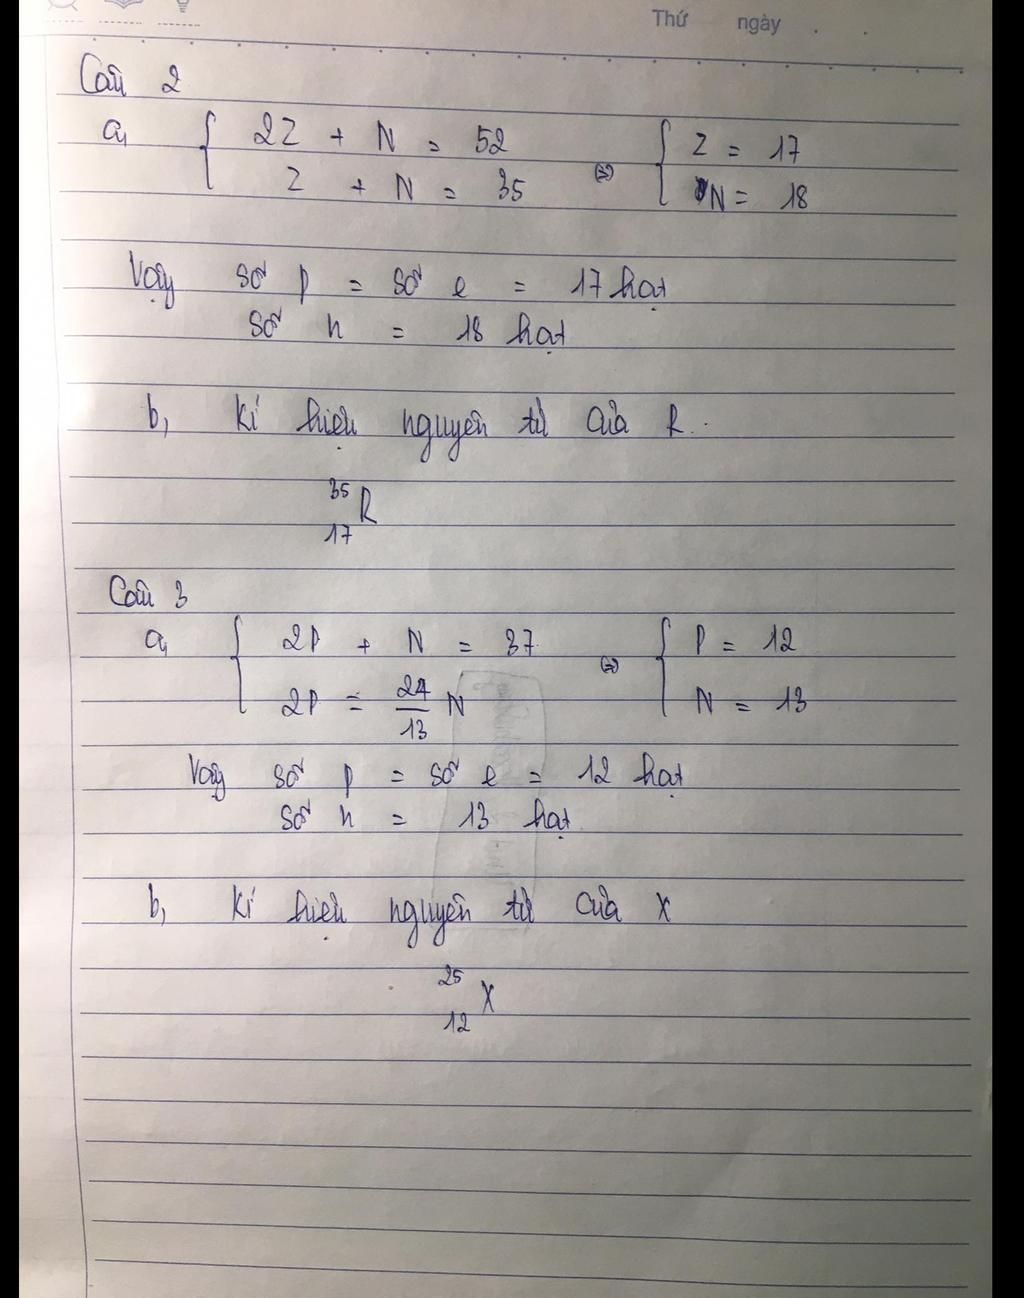 Thứ ngày . .
Câu 2
a, { 2Z + N = 52 ⇔ { Z = 17
Z + N = 35 N = 18
Vậy số p = số e = 17 hạt
số n = 18 hạt
b, Kí hiệu nguyên tử của R.
35
R
17
Câu 3
a, { 2P + N = 37 ⇔ { P = 12
2P = 24/13 N N = 13
Vậy số p = số e = 12 hạt
số n = 13 hạt
b, Kí hiệu nguyên tử của X
25
X
12